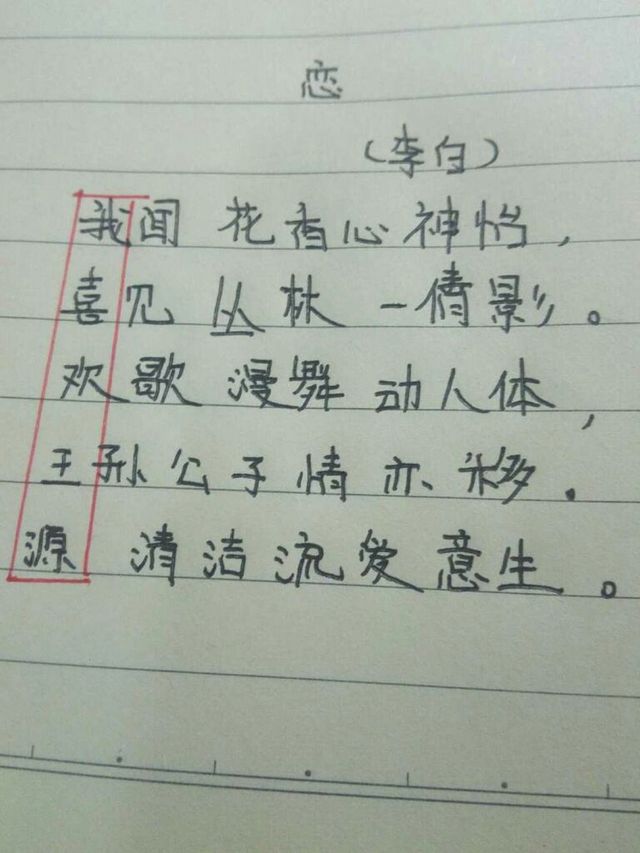 恋
（李白）
我闻花香心神怡，
喜见丛林一倩影。
欢歌漫舞动人体，
王孙公子情亦移.
源清洁流爱意生。